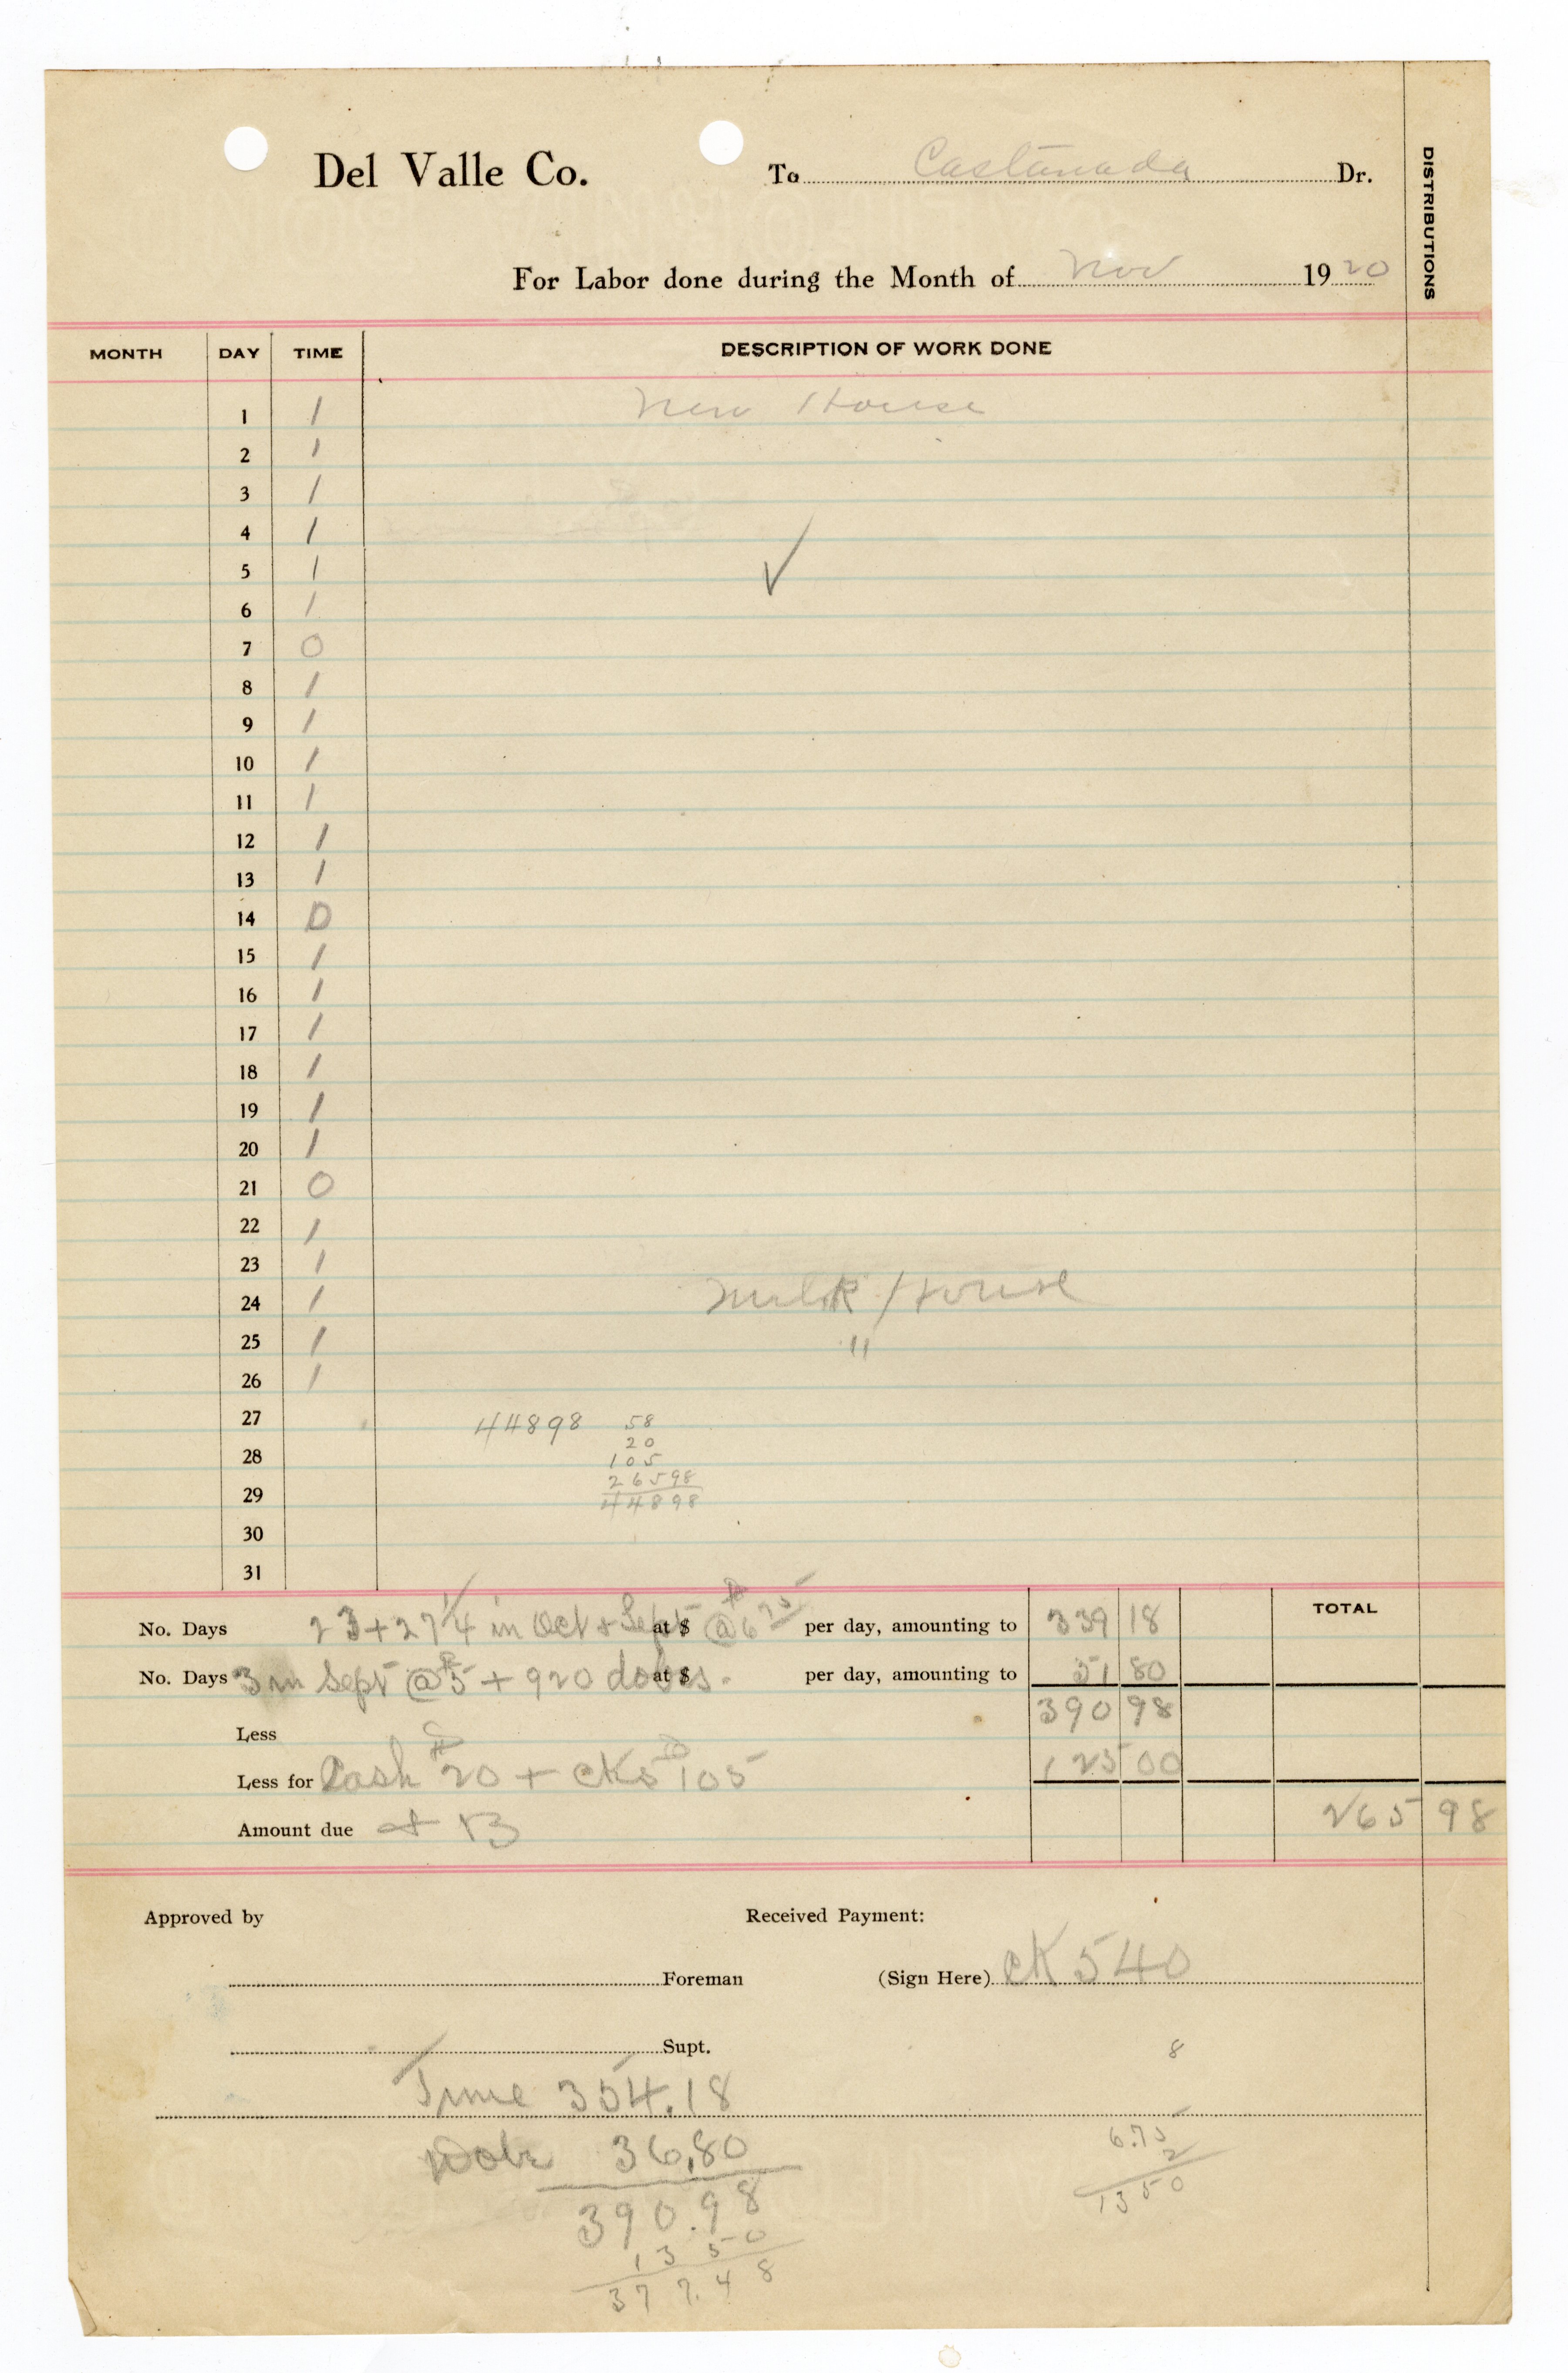 Del Valle Co. To Castanada Dr.
DISTRIBUTIONS
For Labor done during the Month of Nov 1920
MONTH DAY TIME DESCRIPTION OF WORK DONE
1 1 New House
2 1
3 1
4 1
5 1
6 1
7 0
8 1
9 1
10 1
11 1
12 1
13 1
14 0
15 1
16 1
17 1
18 1
19 1
20 1
21 0
22 1
23 1
24 1 Milk House
25 1 "
26 1
27 44898 58
20
28 105
26598
29 44898
30
31
No. Days 23 + 27 1/4 in Oct & Sept at $ @ 6 75 per day, amounting to 339 18 TOTAL
No. Days 3 in Sept @ $5 + 920 dobes. at $ per day, amounting to 51 80
Less 390 98
Less for Cash $20 + CKs $105 125 00
Amount due 265 98
Approved by Received Payment:
Foreman (Sign Here) CK 540
Supt. 8
Time 354.18
Dobe 36.80
390.98
13 50
377.48
6.75
2
1350